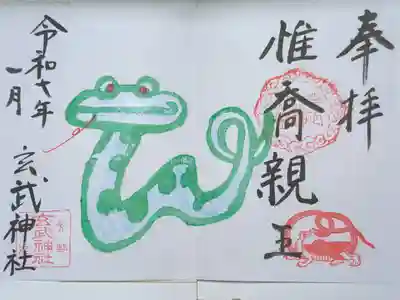 奉拝
惟喬親王
令和七年
一月
玄武神社
玄武神社